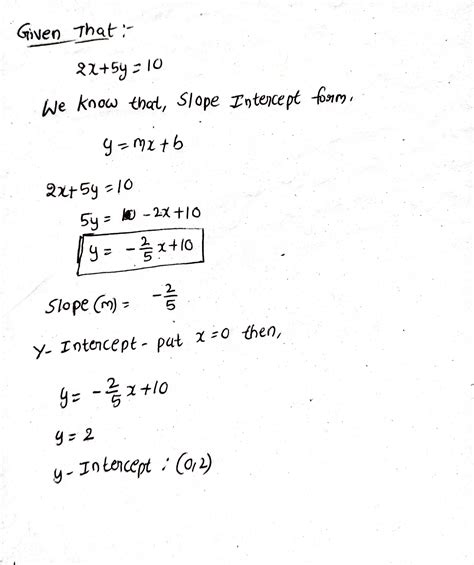 Given That:-
2x+5y=10
We know that, Slope Intercept form,
y=mx+b
2x+5y=10
5y= -2x+10
y= -2/5 x+10
Slope(m)= -2/5
Y- Intercept - put x=0 then,
y= -2/5 x+10
y=2
y-Intercept : (0,2)